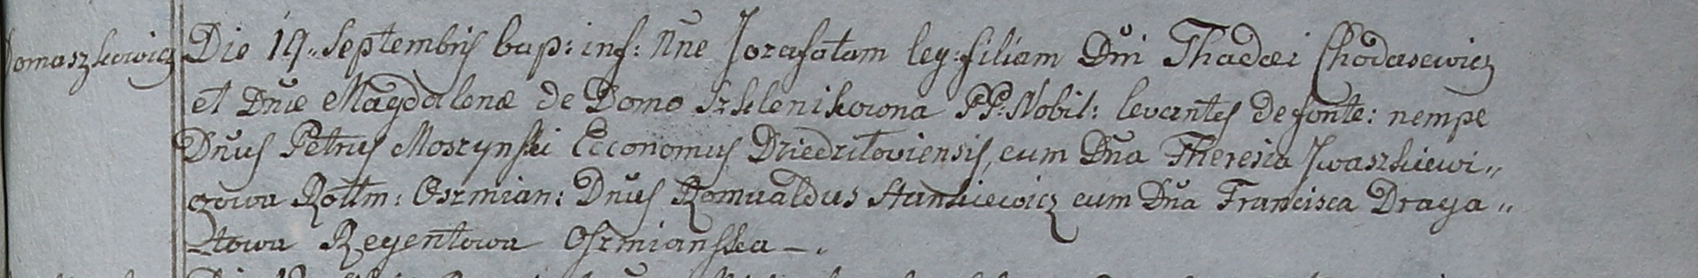 Domaszkowicz Die 19.. Septembris bap: inf: Nne Jozafatam leg: filiam Dni Thadæi Chodasewicz
et Dnæ Magdalenæ de Domo Szklenikowna PP. Nobil: levantes de fonte: nempe
Dnus Petrus Moszynski Economus Dziedziłoviensis, cum Dna Theresia Jwaszkiewi„
czowa Rottm: Oszmian: Dnus Romualdus Stankiewicz cum Dna Francisca Draga„
towa Regentowa Oszmianska —.